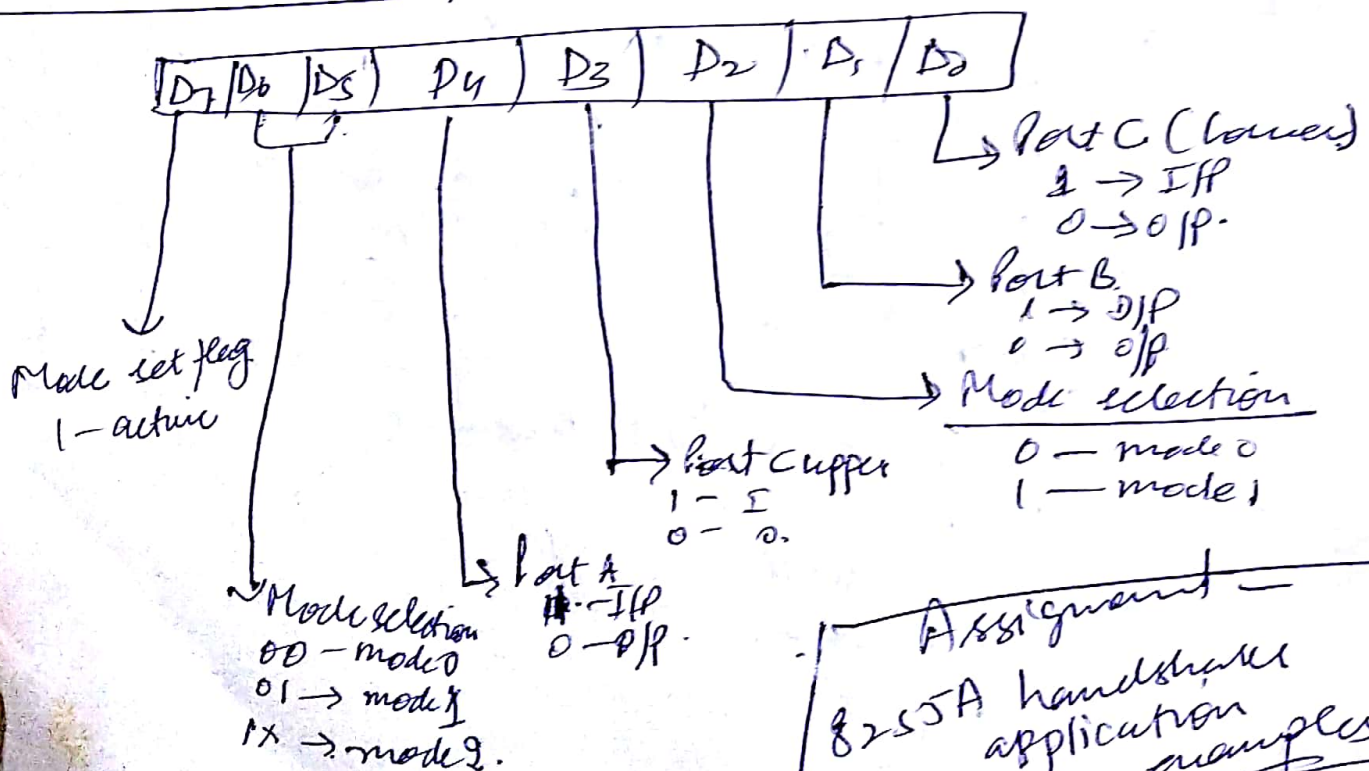 D7 D6 D5 D4 D3 D2 D1 D0
Port C (Lower)
1 → I/P
0 → O/P.
Port B.
1 → I/P
0 → O/P
Mode set flag
1 - active
Mode selection
0 — mode 0
1 — mode 1
Port C upper
1 - I
0 - O.
Port A
1 - I/P
0 - O/P.
Mode selection
00 - mode 0
01 → mode 1
1X → mode 2.
Assignment -
8255A handshake
application
examples